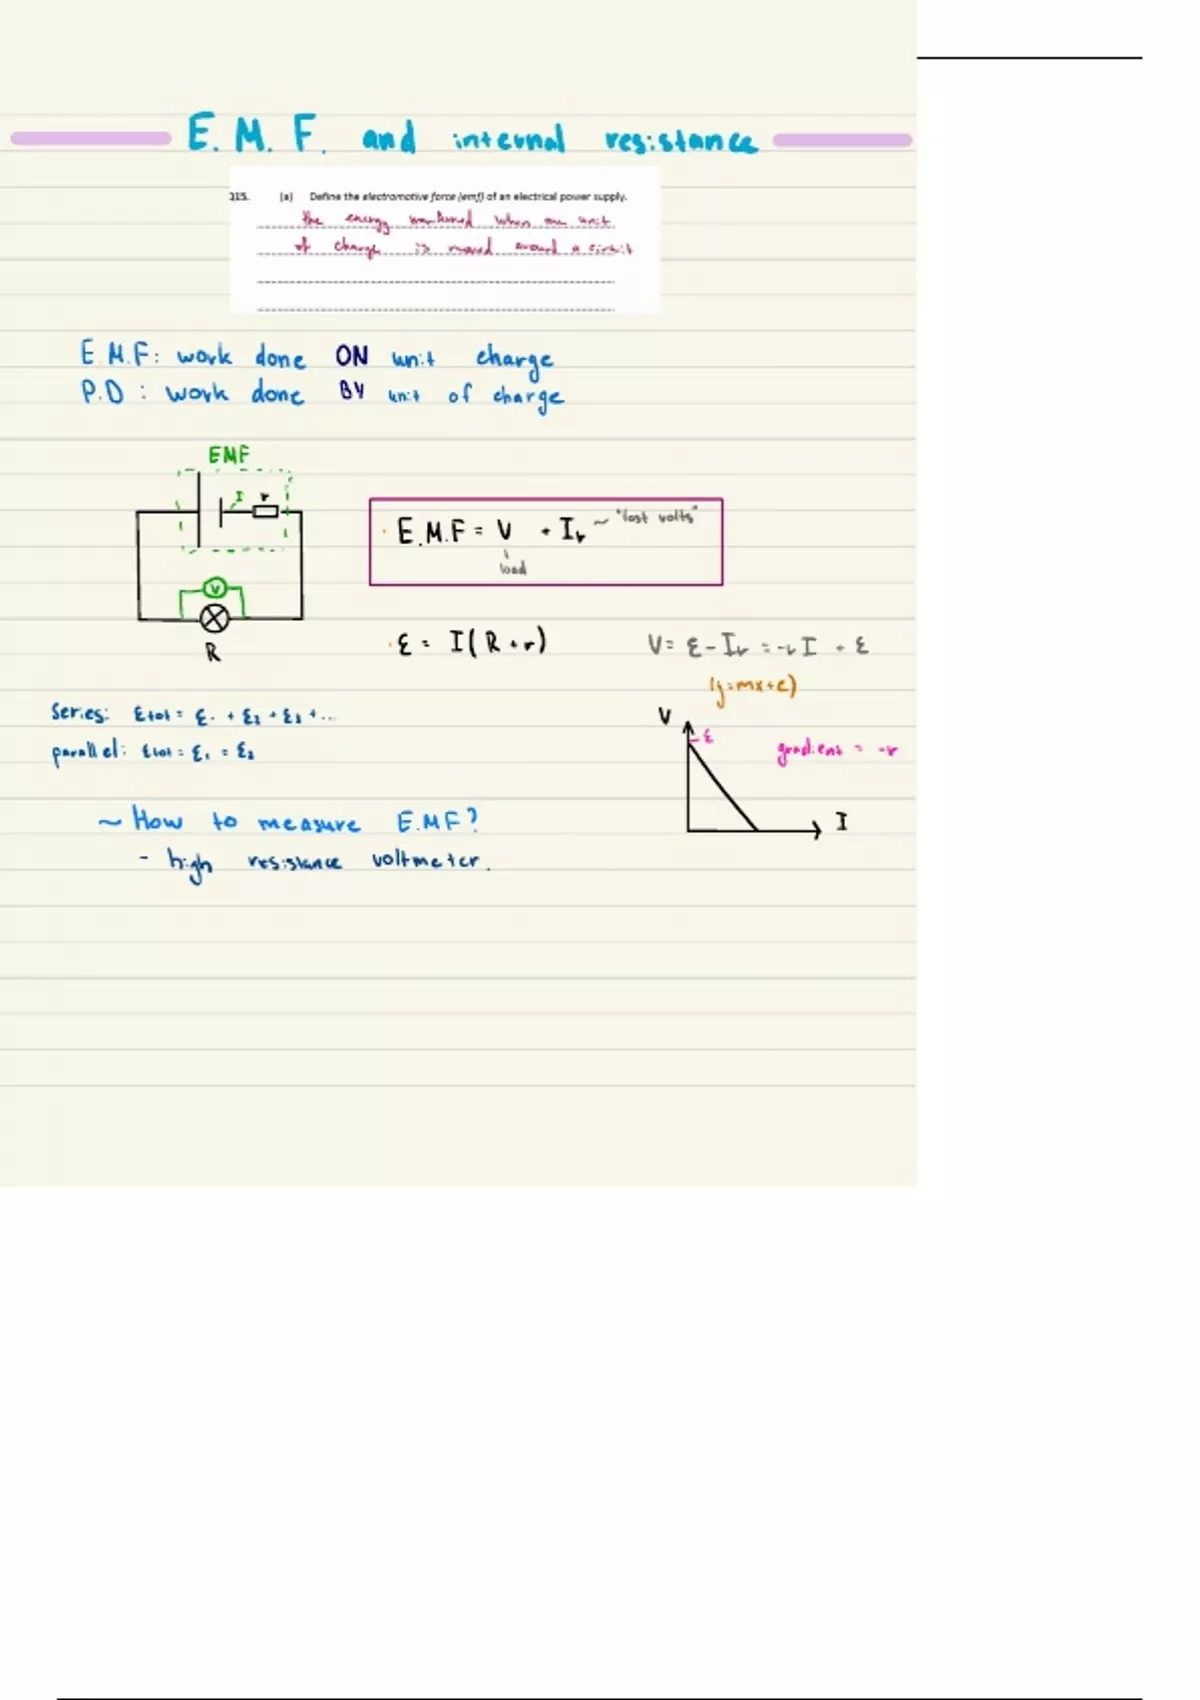 E.M.F. and internal resistance
Q15. (a) Define the electromotive force (emf) of an electrical power supply.
the energy transferred when one unit
of charge is moved around a circuit
E.M.F: work done ON unit charge
P.D: work done BY unit of charge
EMF
I r
V
R
E.M.F = V + Ir ~ "lost volts"
load
ε = I(R+r)
V = ε - Ir = -rI + ε
(y=mx+c)
Series: εtot = ε1 + ε2 + ε3 + ...
parallel: εtot = ε1 = ε2
V
ε
gradient = -r
I
~ How to measure E.M.F?
- high resistance voltmeter.